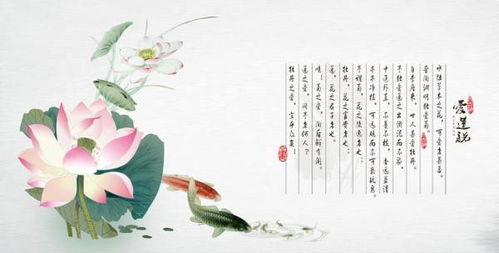 爱莲说
水陆草木之花，可爱者甚蕃。
晋陶渊明独爱菊。
自李唐来，世人甚爱牡丹。
予独爱莲之出淤泥而不染，
中通外直，不蔓不枝，香远益清
亭亭净植，可远观而不可亵玩焉。
予谓菊，花之隐逸者也；
牡丹，花之富贵者也；
莲，花之君子者也。
噫！菊之爱，陶后鲜有闻。
莲之爱，同予者何人？
牡丹之爱，宜乎众矣！